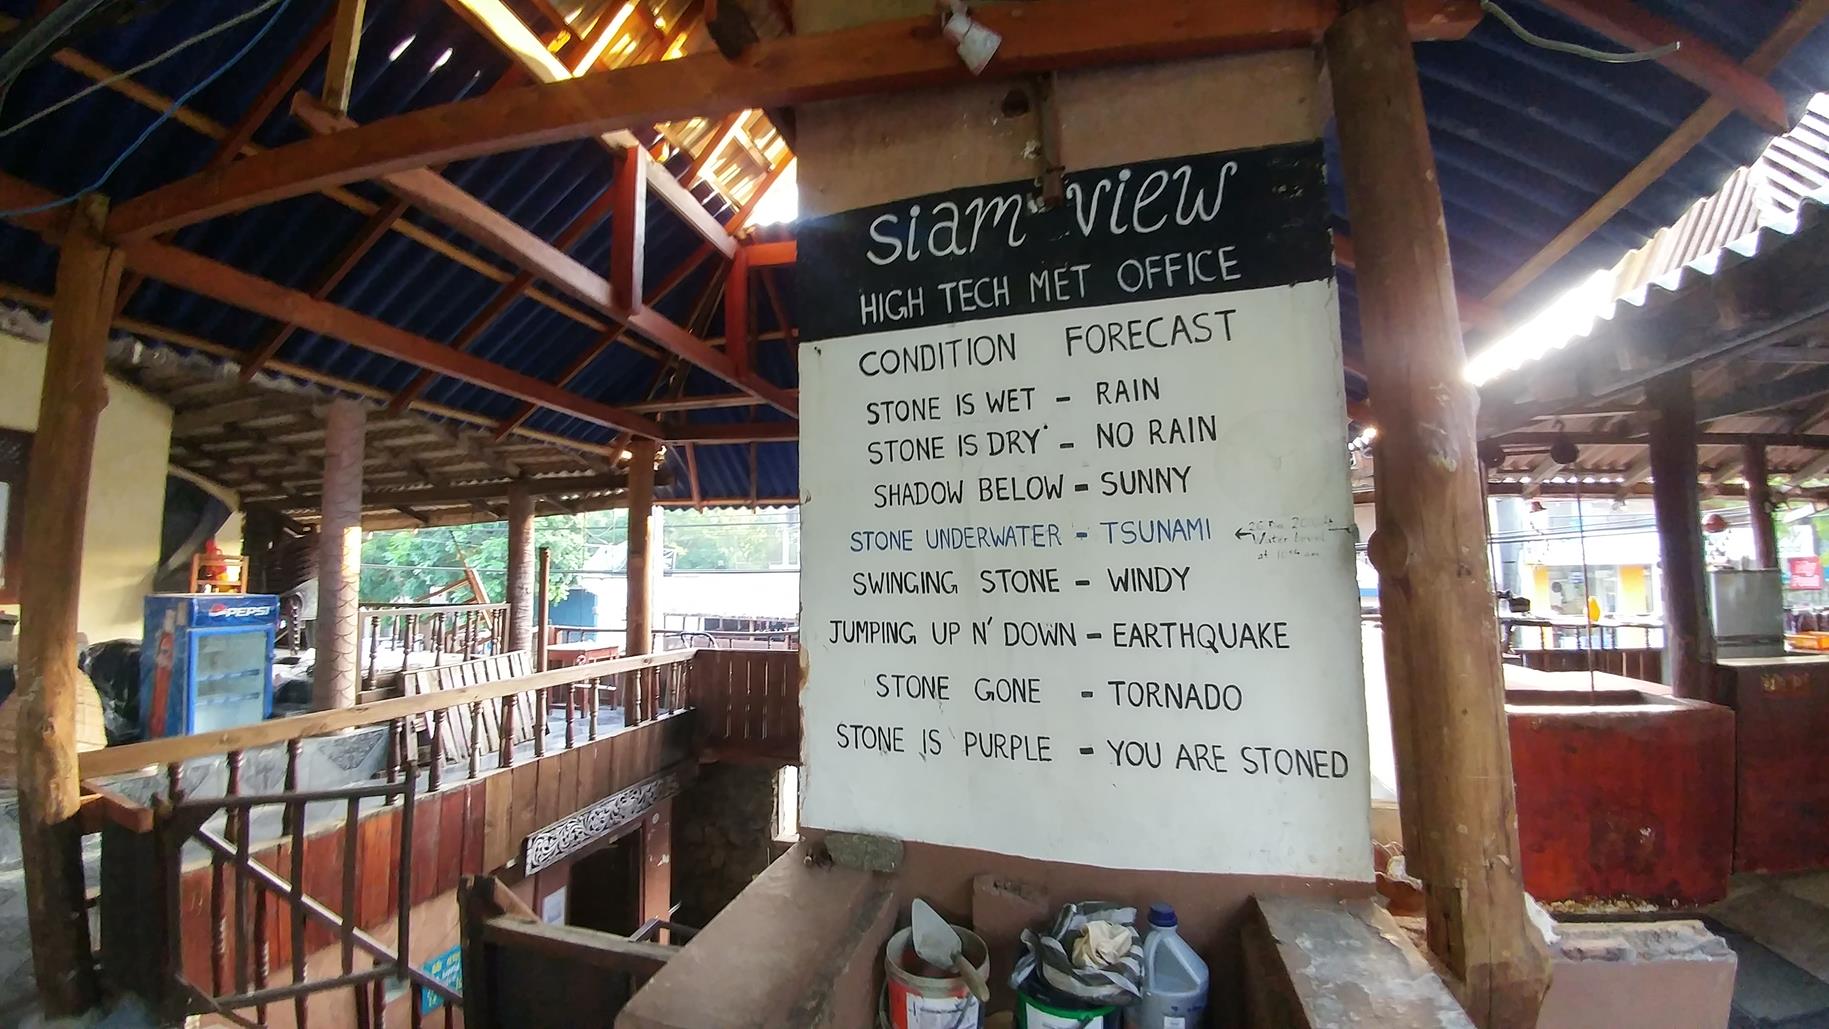 Siam View
HIGH TECH MET OFFICE
CONDITION FORECAST
STONE IS WET - RAIN
STONE IS DRY - NO RAIN
SHADOW BELOW - SUNNY
STONE UNDERWATER - TSUNAMI
Water Level
SWINGING STONE - WINDY
JUMPING UP N' DOWN - EARTHQUAKE
STONE GONE - TORNADO
STONE IS PURPLE - YOU ARE STONED
PEPSI